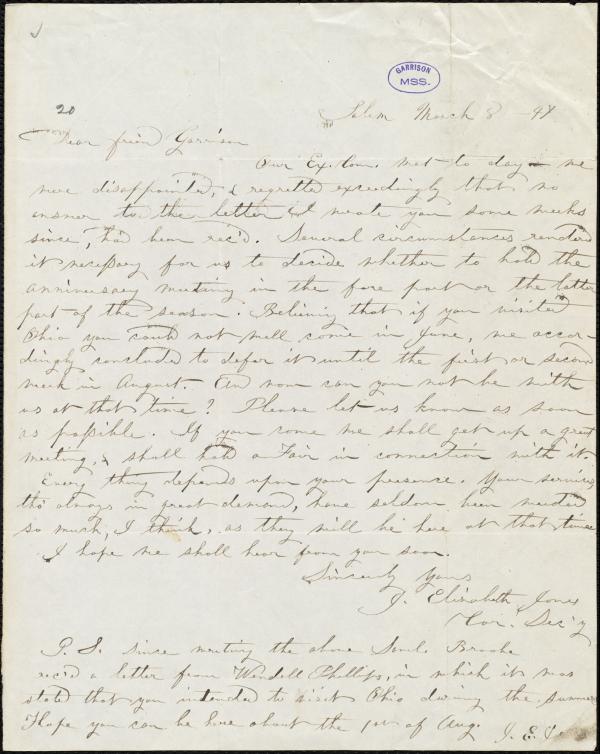 GARRISON
MSS.
20
Salem March 8 -47
Dear friend Garrison
Our Ex. Com. met to day we
were disappointed, & regretted exceedingly that no
answer to the letter I wrote you some weeks
since, had been rec'd. Several circumstances rendered
it necessary for us to decide whether to hold the
anniversary meeting in the fore part or the latter
part of the season. Believing that if you visited
Ohio you could not well come in June, we accor-
dingly concluded to defer it until the first or second
week in August. And now can you not be with
us at that time? Please let us know as soon
as possible. If you come we shall get up a great
meeting, & shall hold a Fair in connection with it.
Every thing depends upon your presence. Your services
tho' always in great demand, have seldom been needed
so much, I think, as they will be here at that time
I hope we shall hear from you soon.
Sincerely Yours
J. Elizabeth Jones
Cor. Sec'y
P.S. since writing the above Saml. Brooke
rec'd a letter from Wendell Phillips, in which it was
stated that you intended to visit Ohio during the summer
Hope you can be here about the 1st of Aug. J. E. J.